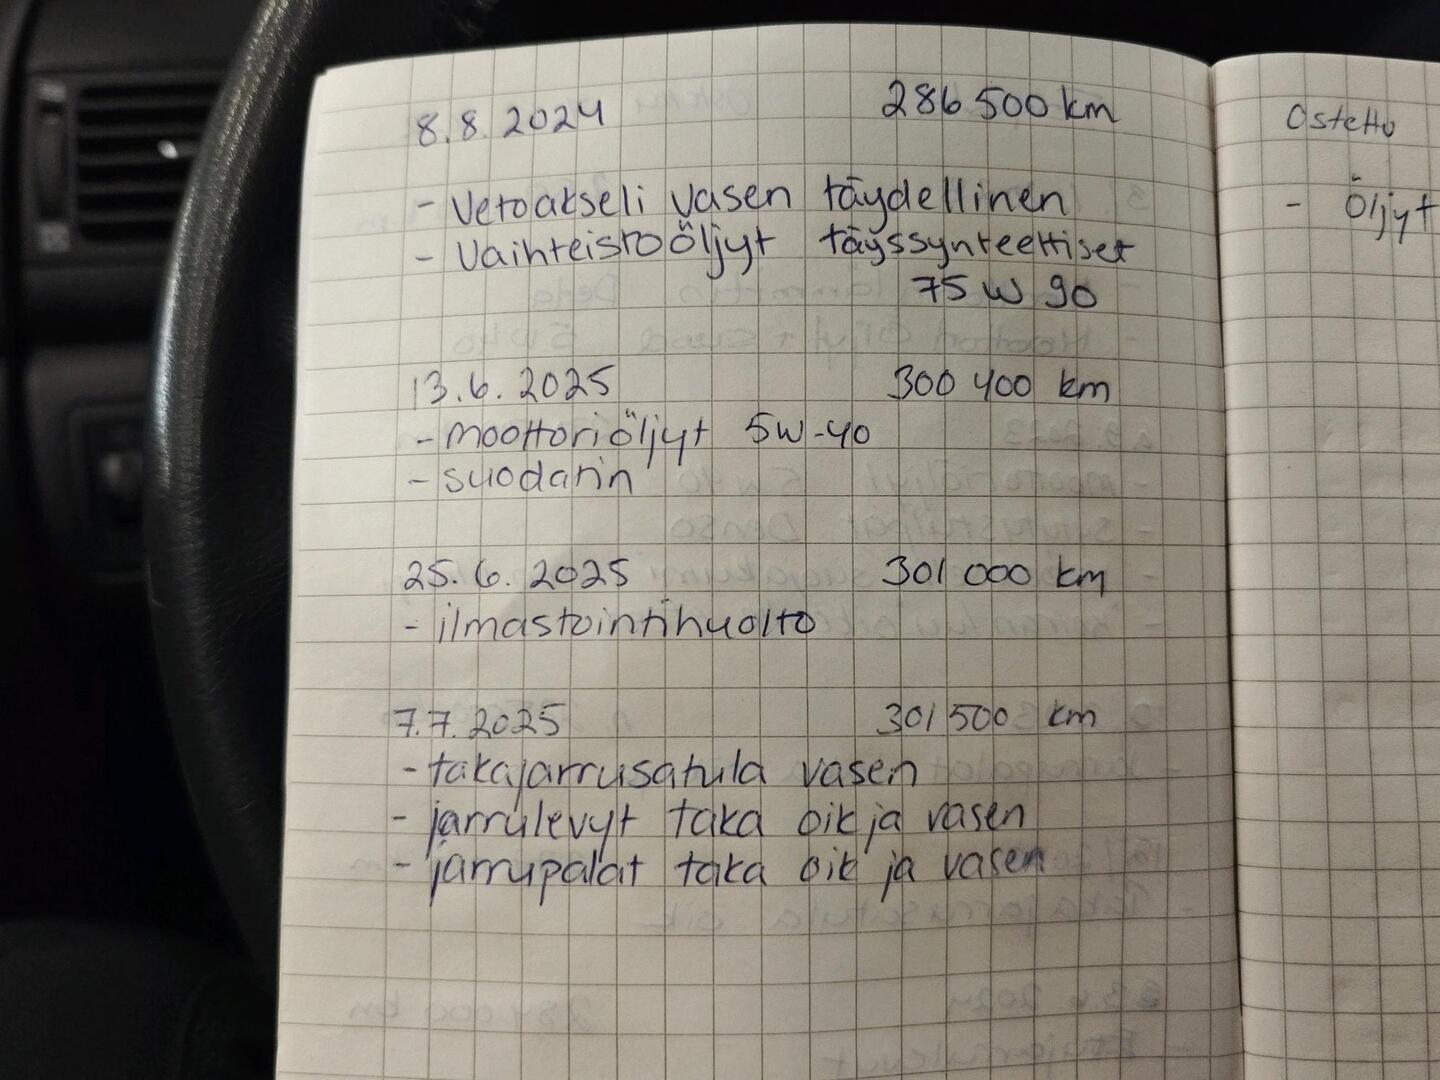 8.8.2024 286 500 km
- Vetoakseli vasen täydellinen
- Vaihteistoöljyt täyssynteettiset
75 W 90
13.6.2025 300 400 km
- moottoriöljyt 5W-40
- suodatin
25.6.2025 301 000 km
- ilmastointihuolto
7.7.2025 301 500 km
- takajarrusatula vasen
- jarrulevyt taka oik ja vasen
- jarrupalat taka oik ja vasen
Ostettu
- Öljyt